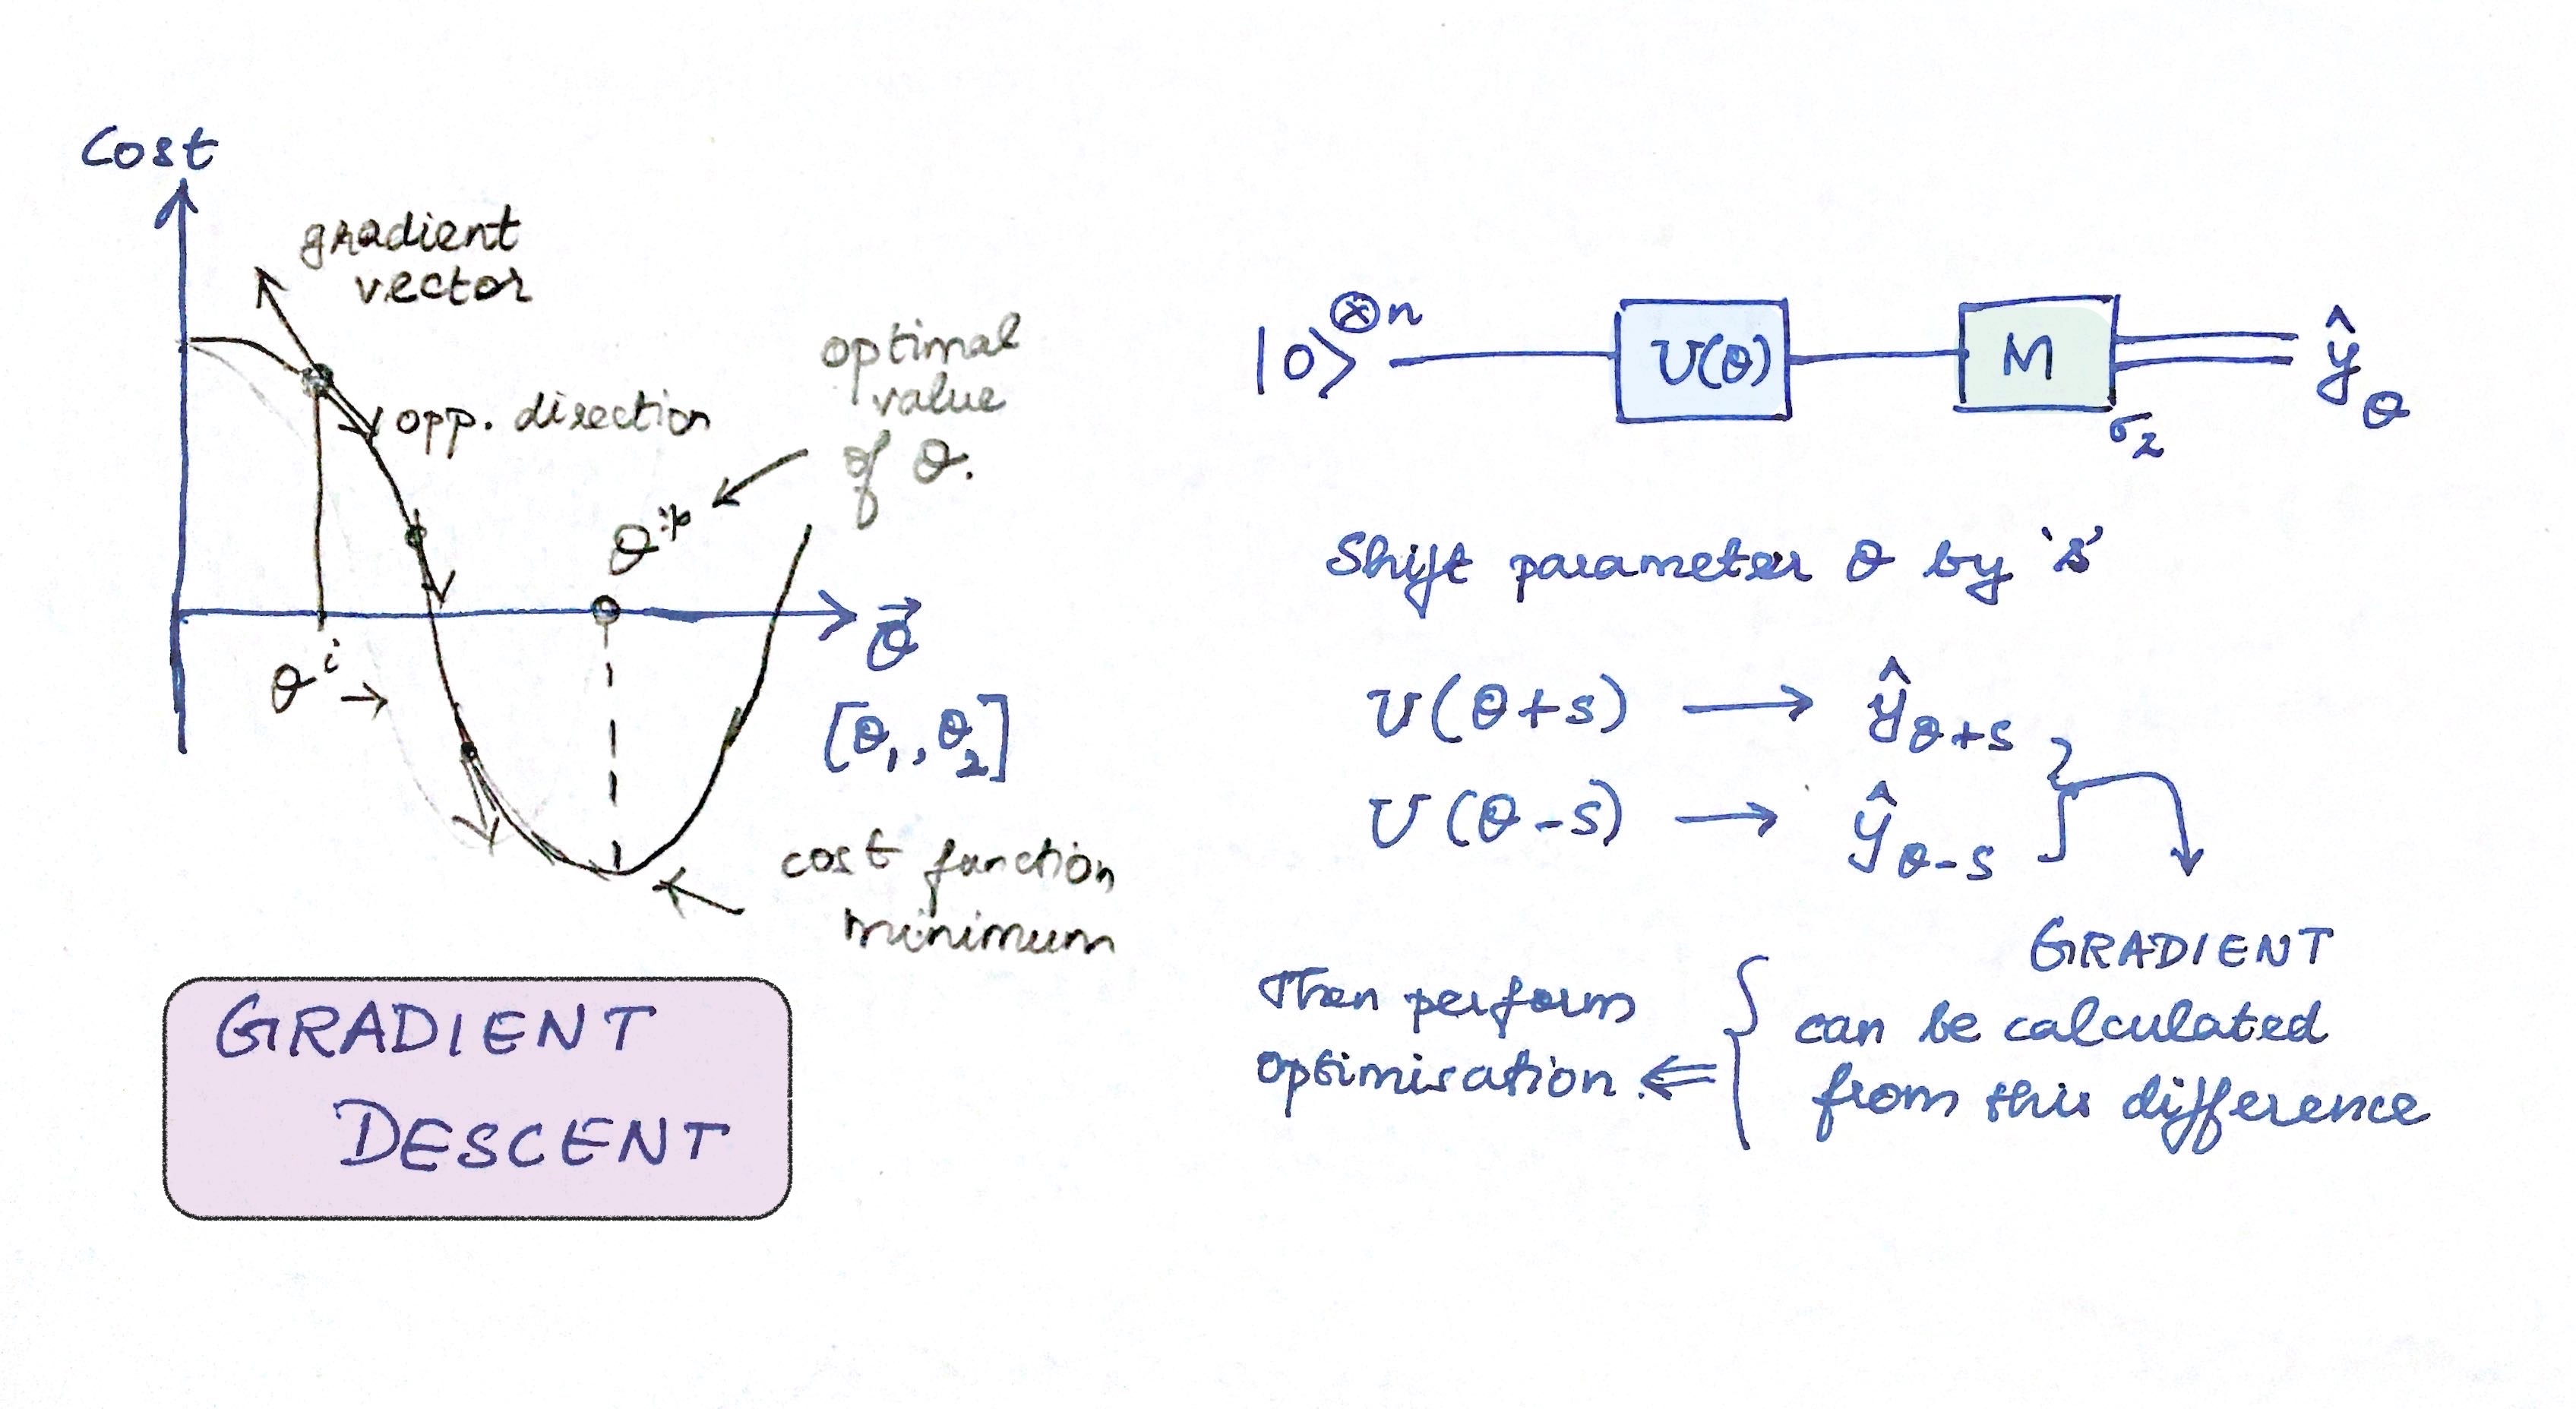 Cost
gradient
vector
opp. direction
optimal
value
of θ.
θ*
θ⃗
θⁱ →
[θ₁, θ₂]
cost function
minimum
GRADIENT
DESCENT
|0⟩^⊗n
U(θ)
M
σz
ŷ_θ
Shift parameter θ by 's'
U(θ+s) → ŷ_θ+s
U(θ-s) → ŷ_θ-s
GRADIENT
can be calculated
from this difference
Then perform
optimisation ⇐